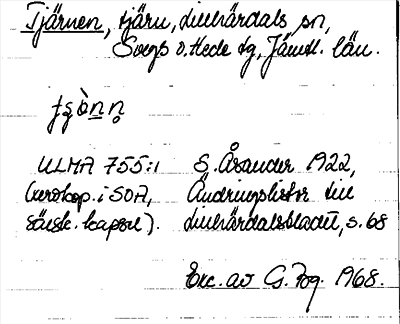 Tjärnen, tjärn, Lillhärdals sn,
Svegs o. Hede tg, Jämtl. län.
ULMA 755:1 S. Åsander 1922,
(xerokop. i SOA, Ändringslistor till
särsk. kapsel). Lillhärdalsbladet, s. 68
Exc. av G. Fog. 1968.